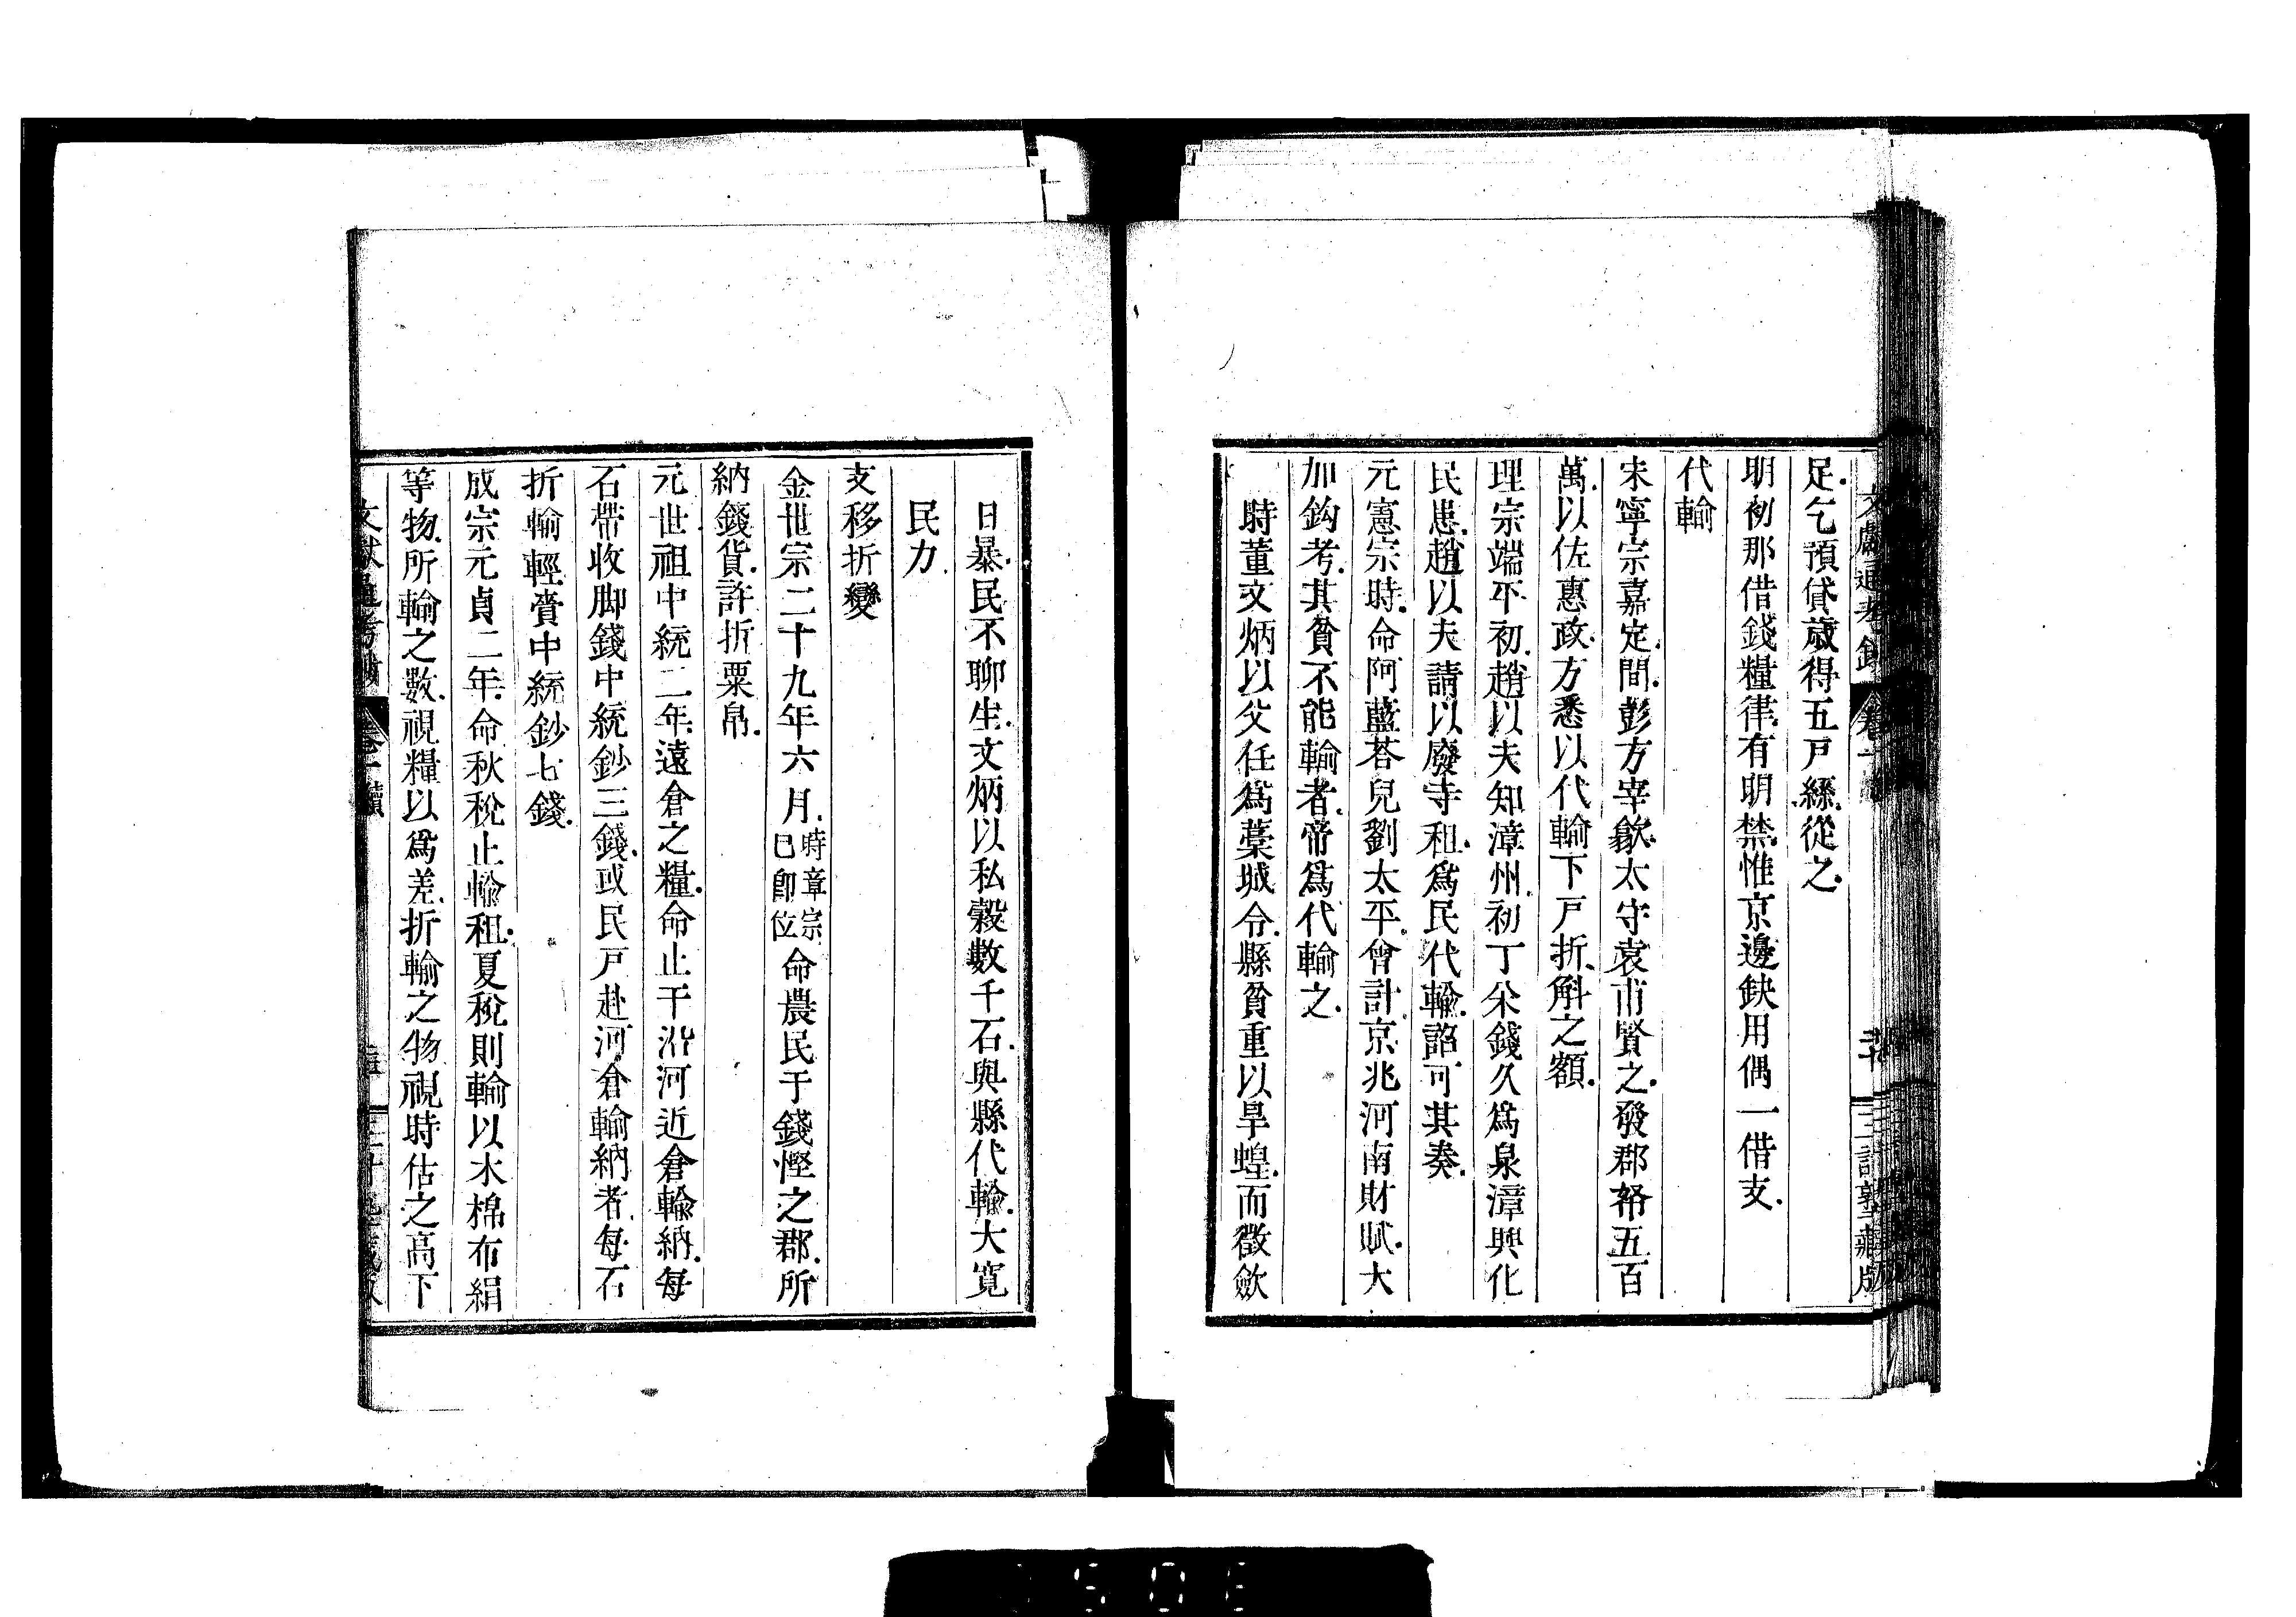 足乞預貸歲得五戸絲從之
明初那借錢糧律有明禁惟京邊缺用偶一借支
代輸
宋寧宗嘉定間彭方宰歙太守袁甫賢之發郡帑五百
萬以佐惠政方悉以代輸下戸折斛之額
理宗端平初趙以夫知漳州初丁米錢久爲泉漳興化
民患趙以夫請以廢寺租爲民代輸詔可其奏
元憲宗時命阿藍荅兒劉太平會計京兆河南財賦大
加鈎考其貧不能輸者帝爲代輸之
時董文炳以父任爲藁城令縣貧重以旱蝗而徵斂
日暴民不聊生文炳以私穀數千石與縣代輸大寛
民力
支移折變
金世宗二十九年六月時章宗已卽位命農民于錢慳之郡所
納錢貨許折粟帛
元世祖中統二年遠倉之糧命止于沿河近倉輸納每
石帶收脚錢中統鈔三錢或民戸赴河倉輸納者每石
折輸輕賫中統鈔七錢
成宗元貞二年命秋稅止輸租夏稅則輸以木棉布絹
等物所輸之數視糧以爲差折輸之物視時估之高下